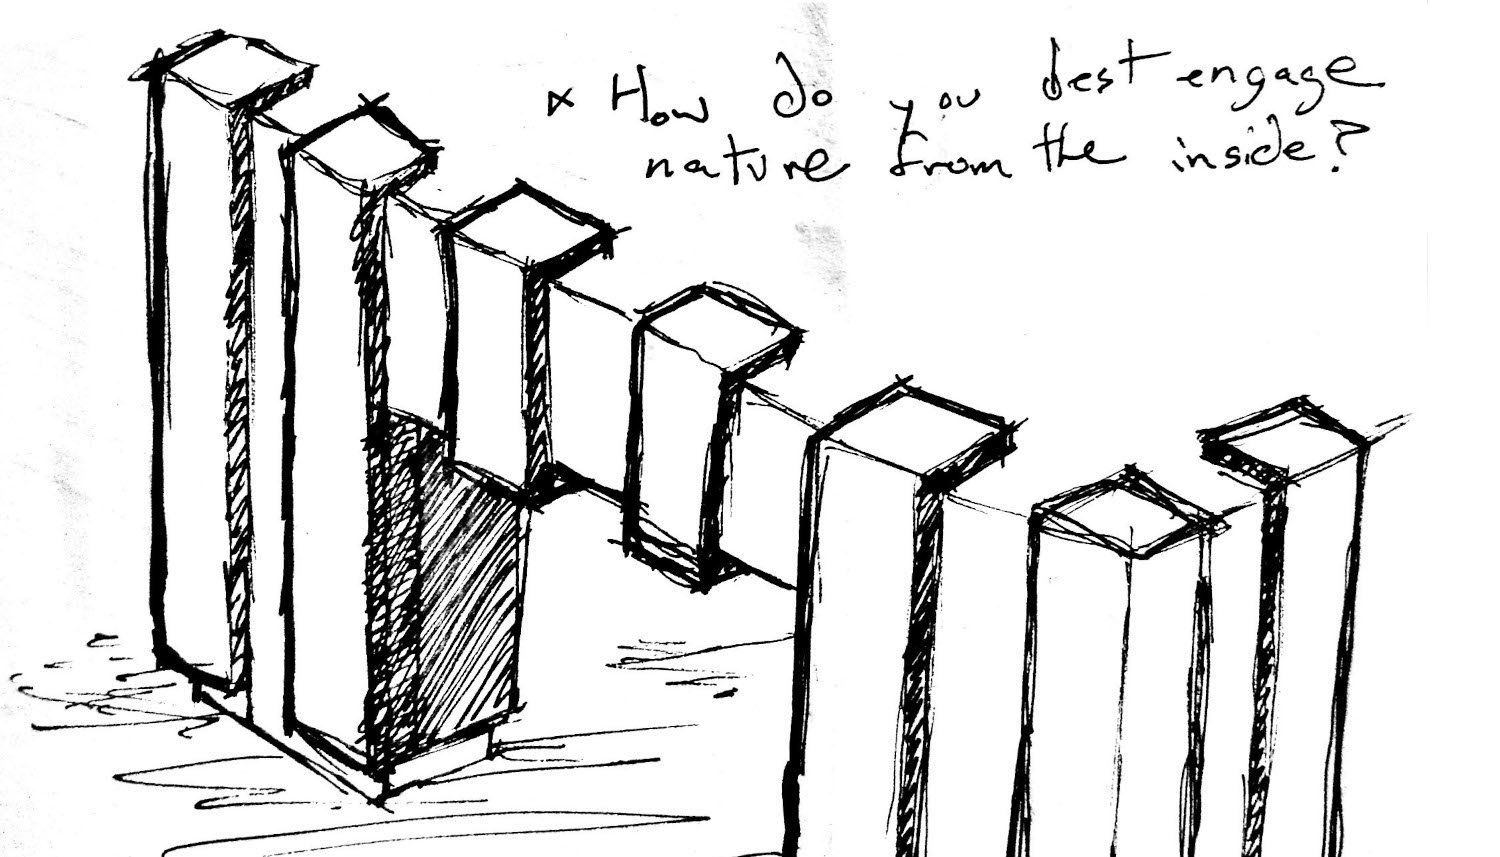 * How do you best engage
nature from the inside?